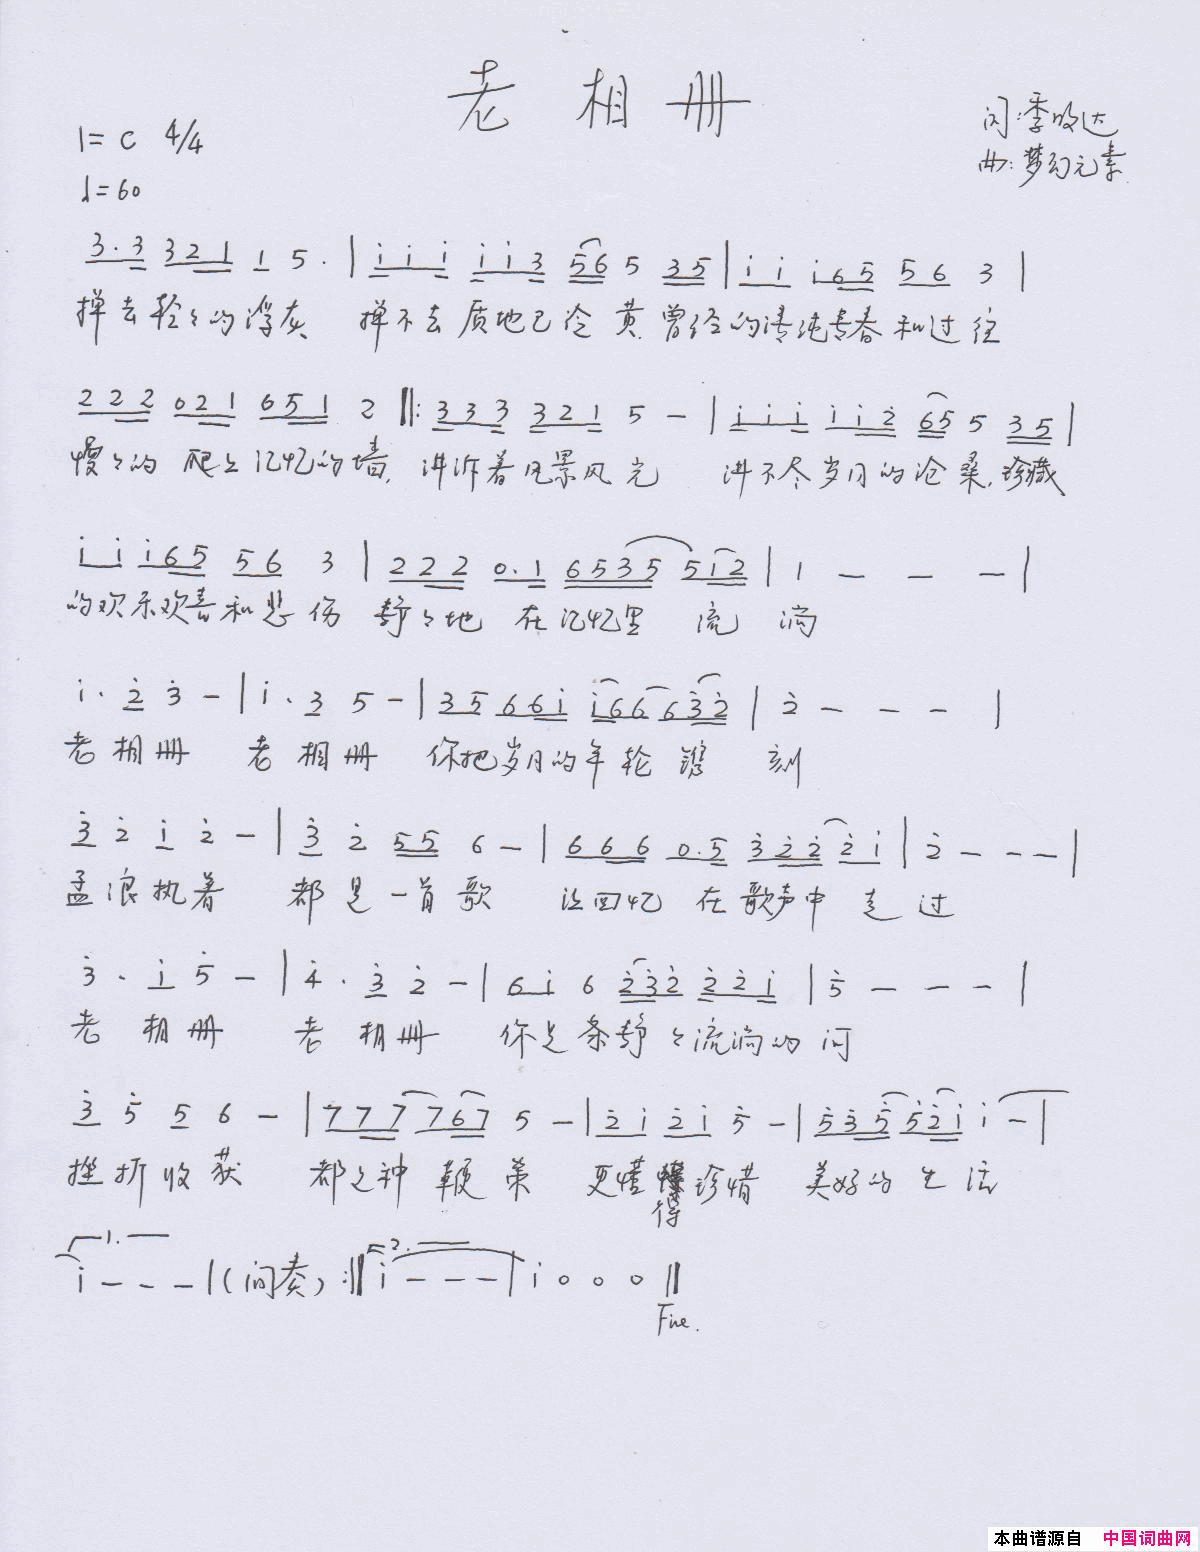 老相册
1=C 4/4
词:季收达
曲:梦幻元素
♩=60
3.3 321 1 5. | i i i i i 3 56 5 35 | i i i65 56 3 |
掸去轻々的浮灰 掸不去质地已 黄,曾经的清纯青春和过往
222 021 651 2 ‖: 333 321 5 - | i i i i i 2 65 5 35 |
慢々的 爬上记忆的墙, 讲诉着风景风光 讲不尽岁月的沧桑,珍藏
i i i65 56 3 | 222 0.1 6535 5i2 | 1 - - - |
的欢乐欢喜和悲伤 静々地 在记忆里 流淌
i. 2 3 - | i. 3 5 - | 35 66i i66 632 | 2 - - - |
老相册 老相册 你把岁月的年轮镌刻
3 2 i 2 - | 3 2 55 6 - | 666 0.5 322 2i | 2 - - - |
孟浪执着 都是一首歌 让回忆 在歌声中走过
3. i 5 - | 4. 3 2 - | 6i 6 232 22i | 5 - - - |
老相册 老相册 你是条静々流淌的河
3 5 5 6 - | 777 767 5 - | 2i 2i 5 - | 535 52i i - |
挫折收获 都是种鞭策 更懂得珍惜 美好的生活
1.
i - - - | (间奏) :‖
2.
i - - - | i 0 0 0 ‖
Fine.
本曲谱源自 中国词曲网